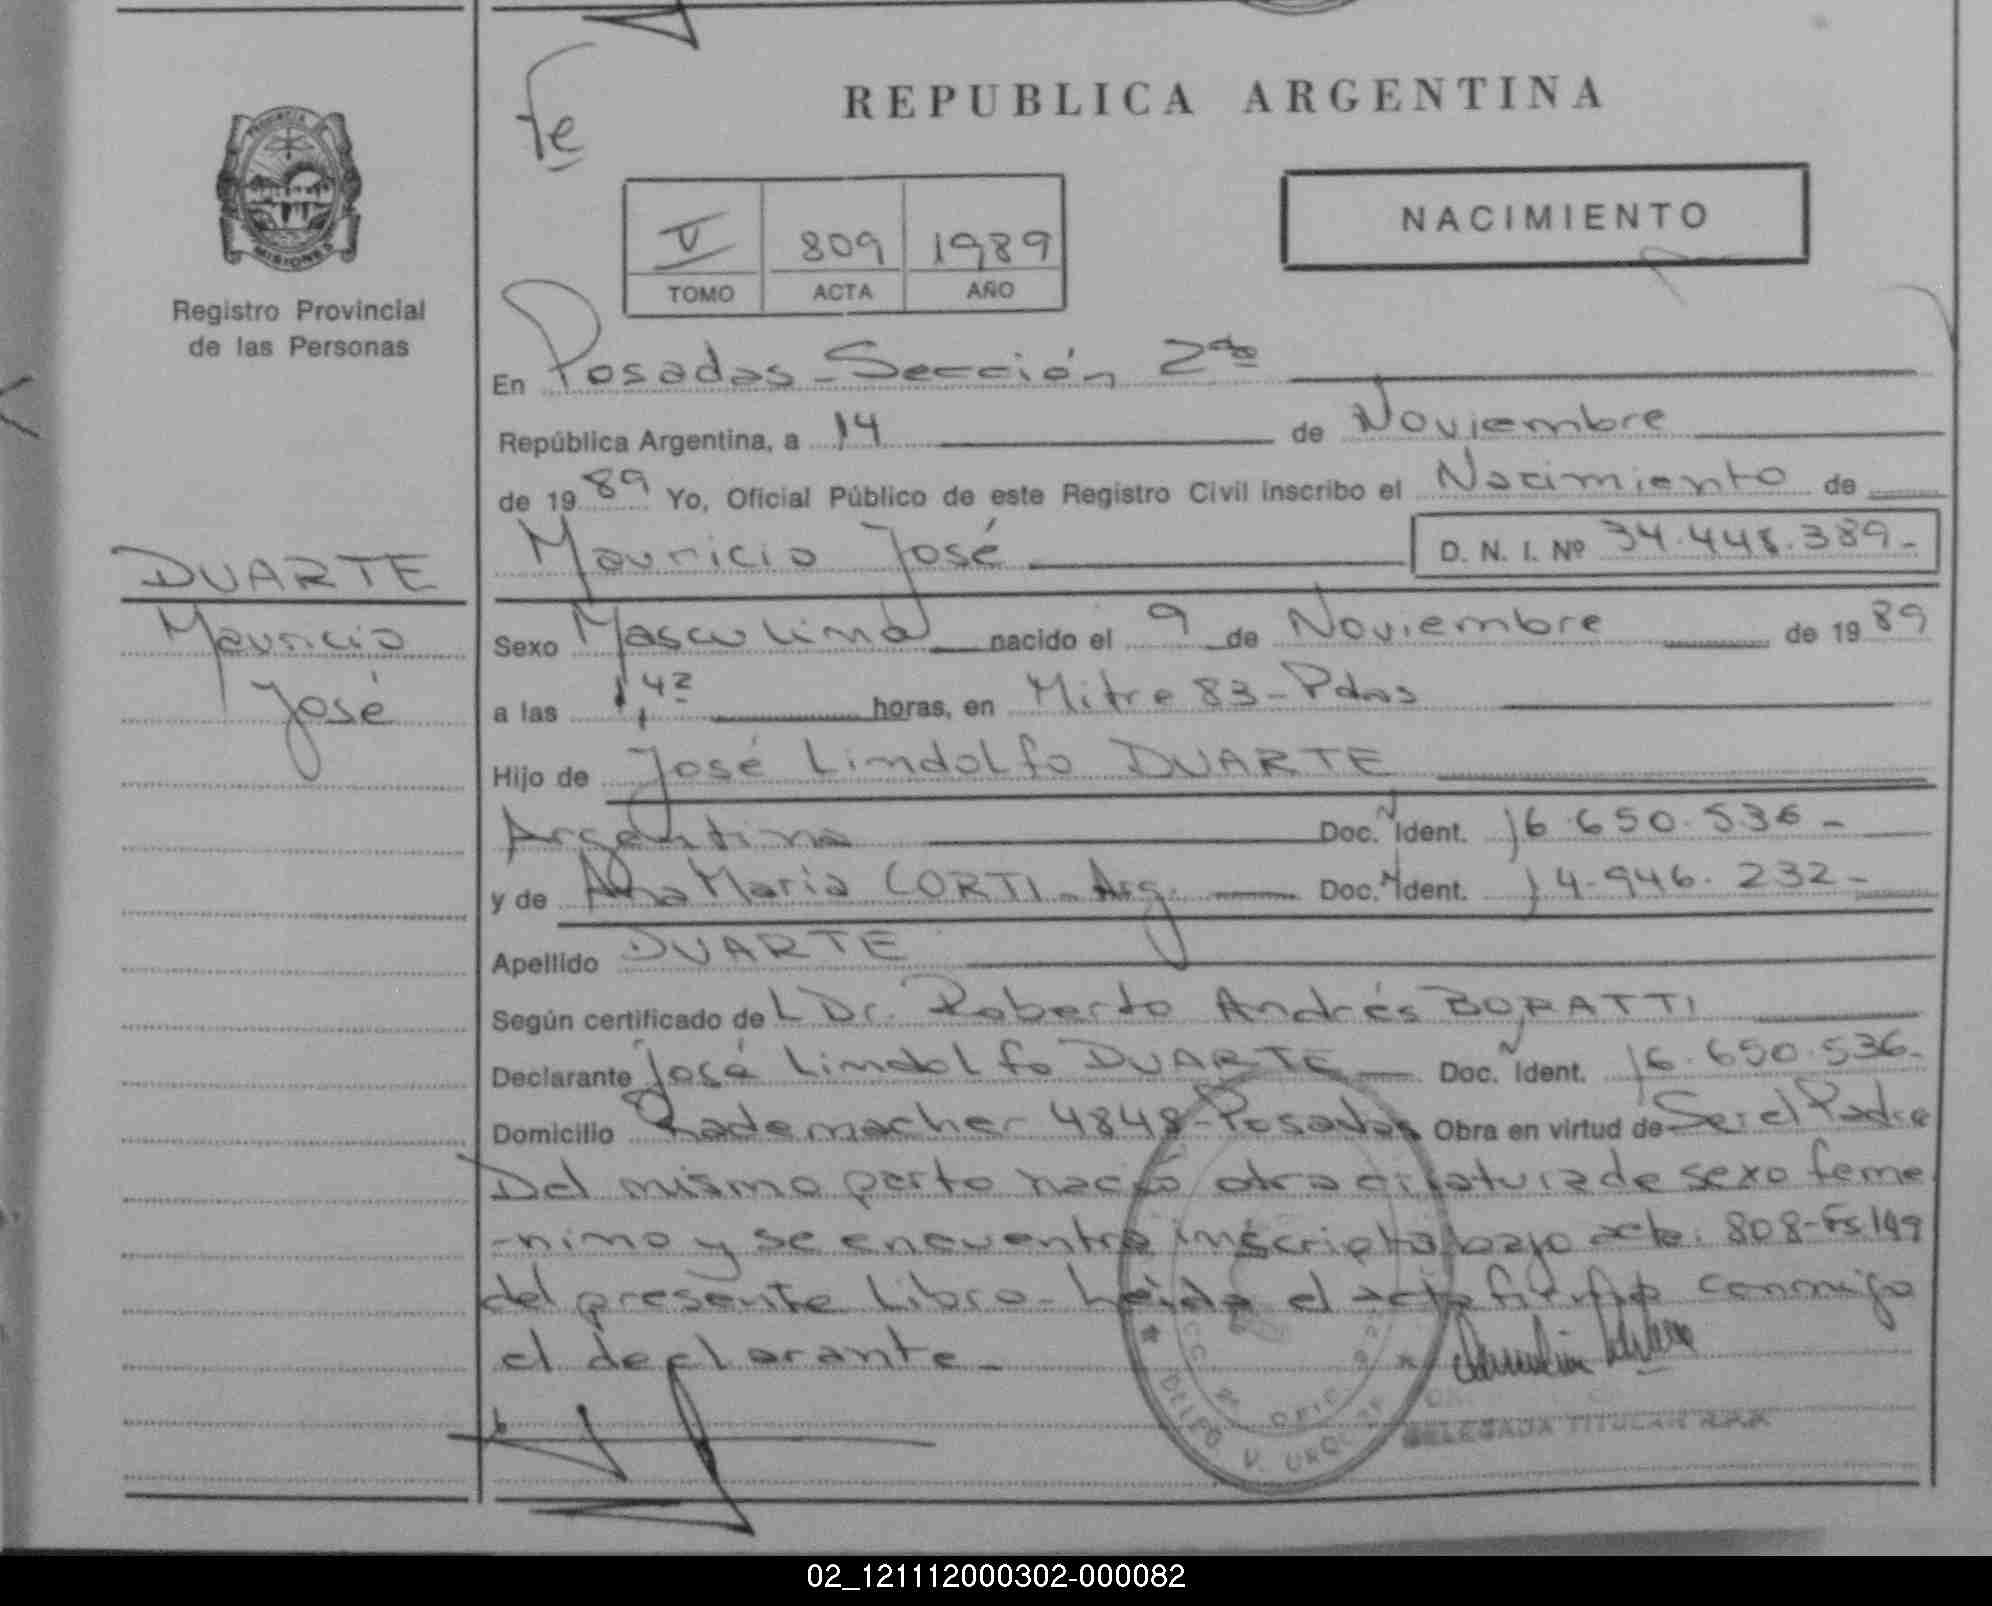 REPUBLICA ARGENTINA
NACIMIENTO
V 809 1989
TOMO ACTA AÑO
PROVINCIA
MISIONES
Registro Provincial
de las Personas
En Posadas - Sección 2da
República Argentina, a 14 de Noviembre
de 1989 Yo, Oficial Público de este Registro Civil inscribo el Nacimiento de
Mauricio José D. N. I. Nº 34.448.389-
DUARTE
Mauricio
José
Sexo Masculino nacido el 9 de Noviembre de 1989
a las 1,42 horas, en Mitre 83 - Pdas
Hijo de José Lindolfo DUARTE
Argentina Doc. Ident. 16.650.536-
y de Ana Maria CORTI - Arg. Doc. Ident. 14.946.232-
Apellido DUARTE
Según certificado del Dr. Roberto Andrés BORATTI
Declarante José Lindolfo DUARTE Doc. Ident. 16.650.536-
Domicilio Rademacher 4848 - Posadas Obra en virtud de Ser el Padre
Del mismo parto nació otra criatura de sexo feme
-nino y se encuentra inscripta bajo acta: 808-Fs.149
del presente Libro - Leída el acta firma conmigo
el declarante -
DELEGADA TITULAR
02_121112000302-000082